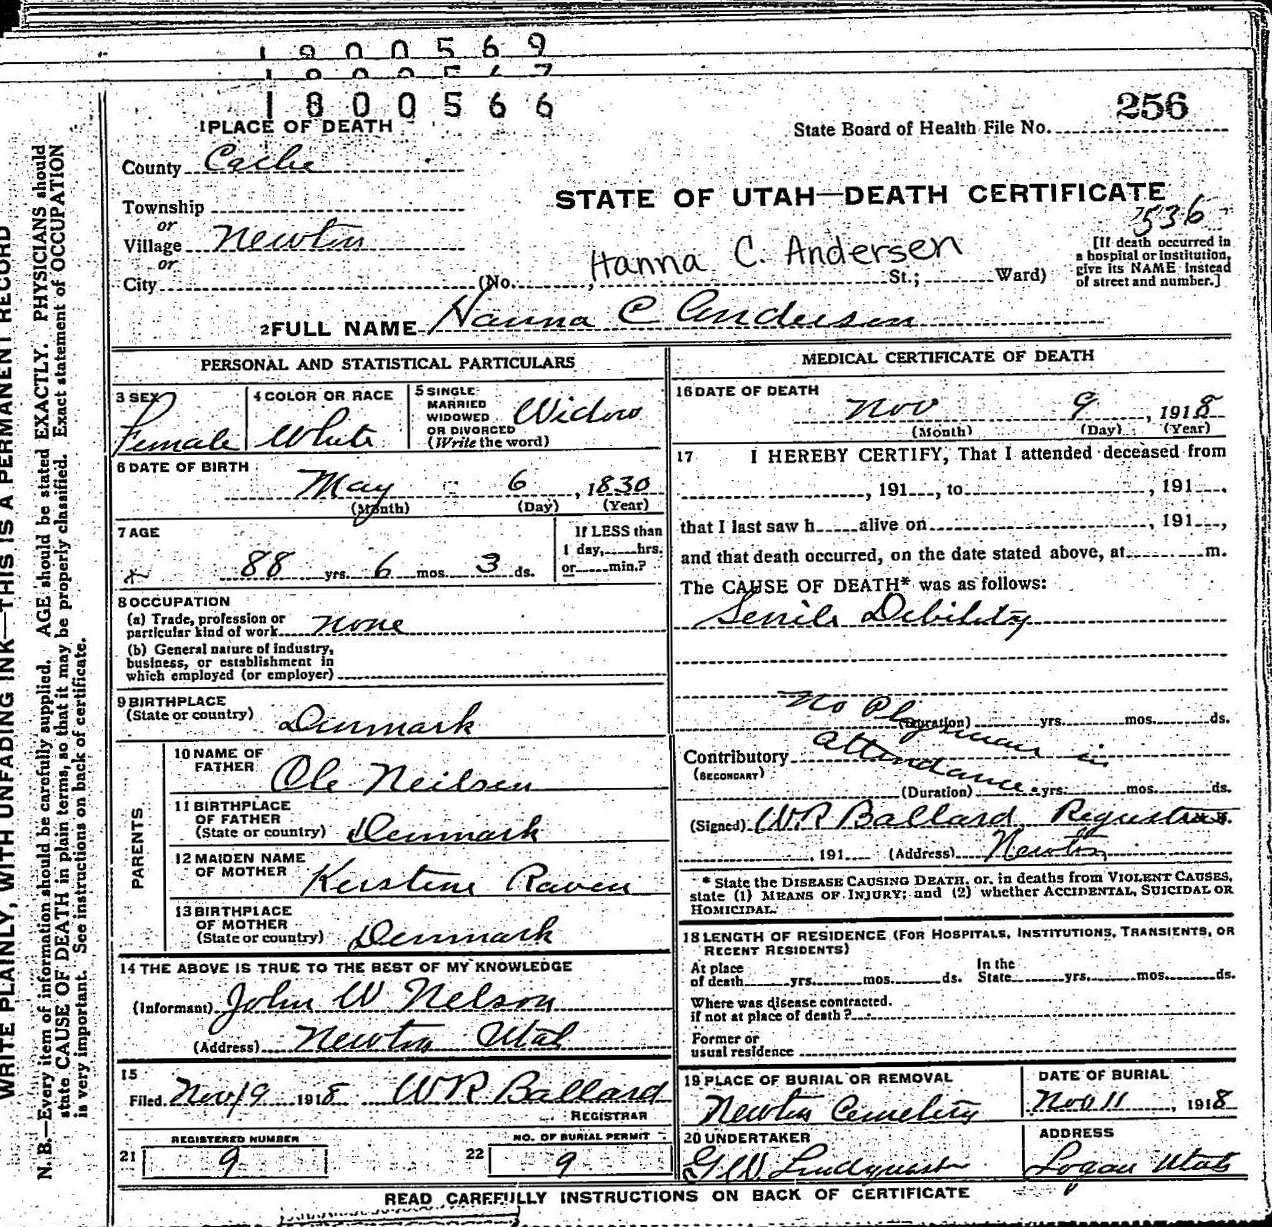 1900569
1800566
256
State Board of Health File No.
1 PLACE OF DEATH
County Cache
STATE OF UTAH—DEATH CERTIFICATE
536
Township
or
Village Newton
or
City (No. , Hanna C. Andersen St.; Ward)
[If death occurred in
a hospital or institution,
give its NAME instead
of street and number.]
2 FULL NAME Hanna C Andersen
PERSONAL AND STATISTICAL PARTICULARS
3 SEX
Female
4 COLOR OR RACE
White
5 SINGLE
MARRIED
WIDOWED
OR DIVORCED
(Write the word)
Widow
6 DATE OF BIRTH
May 6, 1830
(Month) (Day) (Year)
7 AGE
88 yrs. 6 mos. 3 ds.
If LESS than
1 day, hrs.
or min.?
8 OCCUPATION
(a) Trade, profession or
particular kind of work none
(b) General nature of industry,
business, or establishment in
which employed (or employer)
9 BIRTHPLACE
(State or country) Denmark
PARENTS
10 NAME OF
FATHER Ole Neilsen
11 BIRTHPLACE
OF FATHER
(State or country) Denmark
12 MAIDEN NAME
OF MOTHER Kerstine Raven
13 BIRTHPLACE
OF MOTHER
(State or country) Denmark
14 THE ABOVE IS TRUE TO THE BEST OF MY KNOWLEDGE
(Informant) John W Nelson
(Address) Newton Utah
15
Filed Nov 9 1918 WR Ballard
REGISTRAR
REGISTERED NUMBER
21 9
NO. OF BURIAL PERMIT
22 9
MEDICAL CERTIFICATE OF DEATH
16 DATE OF DEATH
Nov 9, 1918
(Month) (Day) (Year)
17 I HEREBY CERTIFY, That I attended deceased from
, 191 , to , 191 .
that I last saw h alive on , 191 ,
and that death occurred, on the date stated above, at m.
The CAUSE OF DEATH* was as follows:
Senile Debility
No Physician in
(Duration) yrs. mos. ds.
Contributory attendance.
(SECONDARY)
(Duration) yrs. mos. ds.
(Signed) WR Ballard Registrar
, 191 (Address) Newton
* State the DISEASE CAUSING DEATH, or, in deaths from VIOLENT CAUSES,
state (1) MEANS OF INJURY; and (2) whether ACCIDENTAL, SUICIDAL OR
HOMICIDAL.
18 LENGTH OF RESIDENCE (FOR HOSPITALS, INSTITUTIONS, TRANSIENTS, OR
RECENT RESIDENTS)
At place
of death yrs. mos. ds.
In the
State yrs. mos. ds.
Where was disease contracted.
if not at place of death?
Former or
usual residence
19 PLACE OF BURIAL OR REMOVAL
Newton Cemetery
DATE OF BURIAL
Nov 11, 1918
20 UNDERTAKER
G W Lindquist
ADDRESS
Logan Utah
READ CAREFULLY INSTRUCTIONS ON BACK OF CERTIFICATE
WRITE PLAINLY, WITH UNFADING INK—THIS IS A PERMANENT RECORD
N. B.—Every item of information should be carefully supplied. AGE should be stated EXACTLY. PHYSICIANS should
state CAUSE OF DEATH in plain terms, so that it may be properly classified. Exact statement of OCCUPATION
is very important. See instructions on back of certificate.